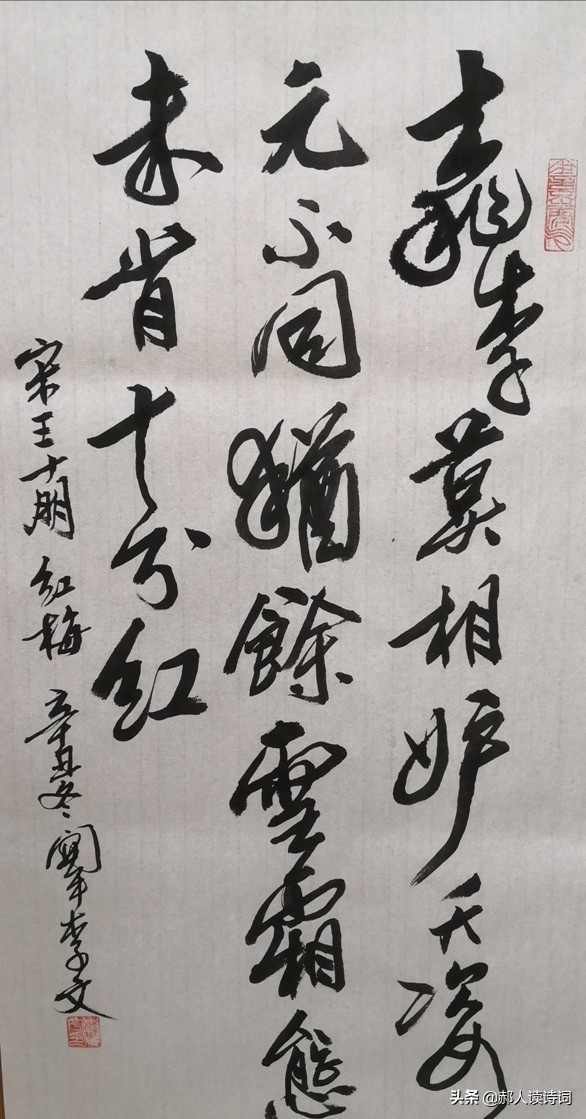 桃李莫相妒夭姿
元不同猶餘雪霜態
未肯十分紅
宋王十朋 紅梅 辛丑冬 李文
头条 @郝人读诗词